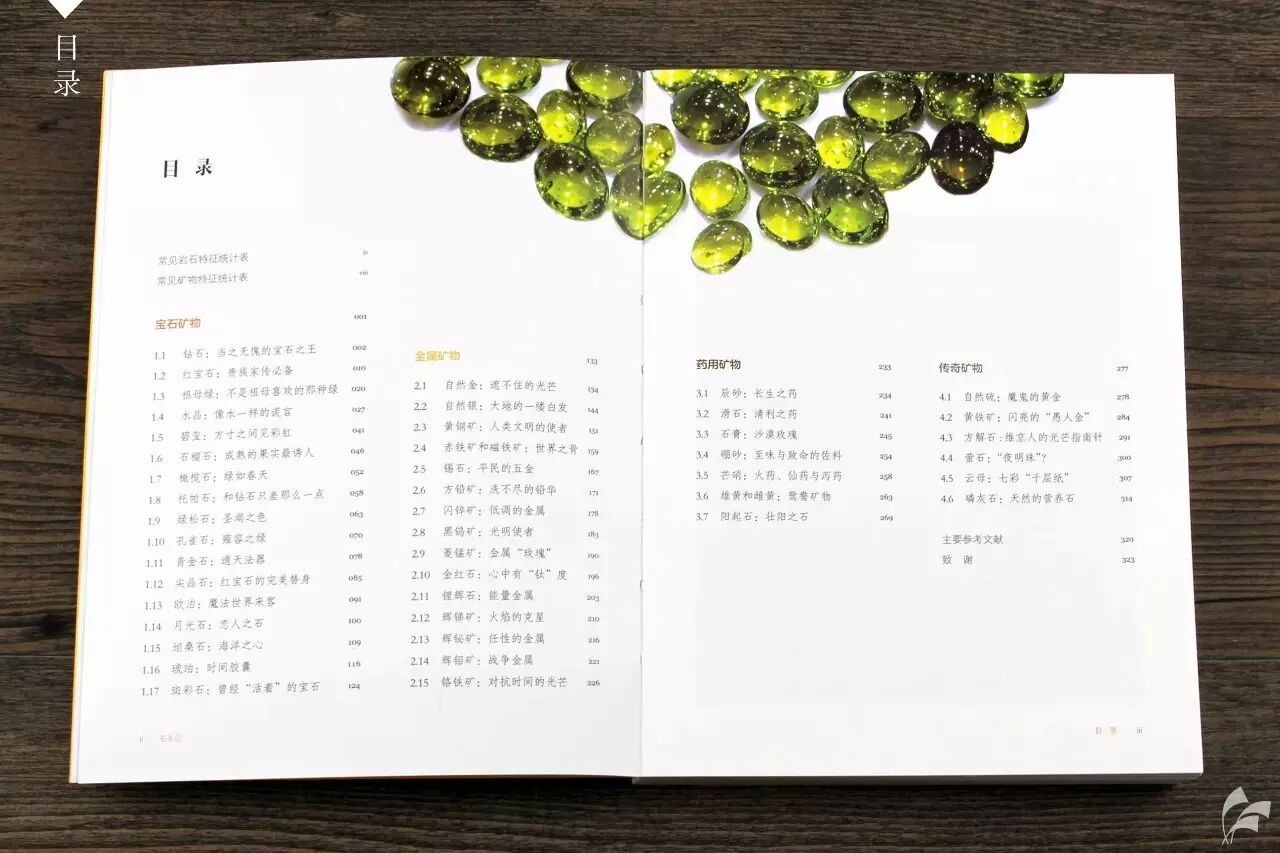 目录
目 录
常见岩石特征统计表 iv
常见矿物特征统计表 viii
宝石矿物 001
1.1 钻石：当之无愧的宝石之王 002
1.2 红宝石：贵族家传必备 010
1.3 祖母绿：不是祖母喜欢的那种绿 020
1.4 水晶：像水一样的谎言 027
1.5 碧玺：方寸之间见彩虹 041
1.6 石榴石：成熟的果实最诱人 046
1.7 橄榄石：绿如春天 052
1.8 托帕石：和钻石只差那么一点 058
1.9 绿松石：圣湖之色 063
1.10 孔雀石：雍容之绿 070
1.11 青金石：通天法器 078
1.12 尖晶石：红宝石的完美替身 085
1.13 欧泊：魔法世界来客 091
1.14 月光石：恋人之石 100
1.15 坦桑石：海洋之心 109
1.16 琥珀：时间胶囊 116
1.17 斑彩石：曾经“活着”的宝石 124
金属矿物 133
2.1 自然金：遮不住的光芒 134
2.2 自然银：大地的一缕白发 144
2.3 黄铜矿：人类文明的使者 151
2.4 赤铁矿和磁铁矿：世界之骨 159
2.5 锡石：平民的五金 167
2.6 方铅矿：洗不尽的铅华 171
2.7 闪锌矿：低调的金属 178
2.8 黑钨矿：光明使者 183
2.9 菱锰矿：金属“玫瑰” 190
2.10 金红石：心中有“钛”度 196
2.11 锂辉石：能量金属 203
2.12 辉锑矿：火焰的克星 210
2.13 辉铋矿：任性的金属 216
2.14 辉钼矿：战争金属 221
2.15 铬铁矿：对抗时间的光芒 226
药用矿物 233
3.1 辰砂：长生之药 234
3.2 滑石：清利之药 241
3.3 石膏：沙漠玫瑰 245
3.4 硼砂：至味与致命的佐料 254
3.5 芒硝：火药、仙药与泻药 258
3.6 雄黄和雌黄：鸳鸯矿物 263
3.7 阳起石：壮阳之石 269
传奇矿物 277
4.1 自然硫：魔鬼的黄金 278
4.2 黄铁矿：闪亮的“愚人金” 284
4.3 方解石：维京人的光芒指南针 291
4.4 萤石：“夜明珠”？ 300
4.5 云母：七彩“千层纸” 307
4.6 磷灰石：天然的营养石 314
主要参考文献 320
致 谢 323
ii 石头记
目 录 iii